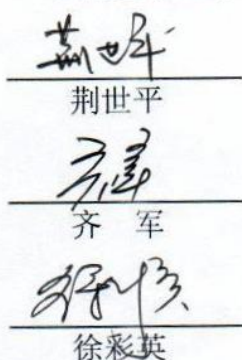 荆世平
荆世平
齐军
齐　军
徐彩英